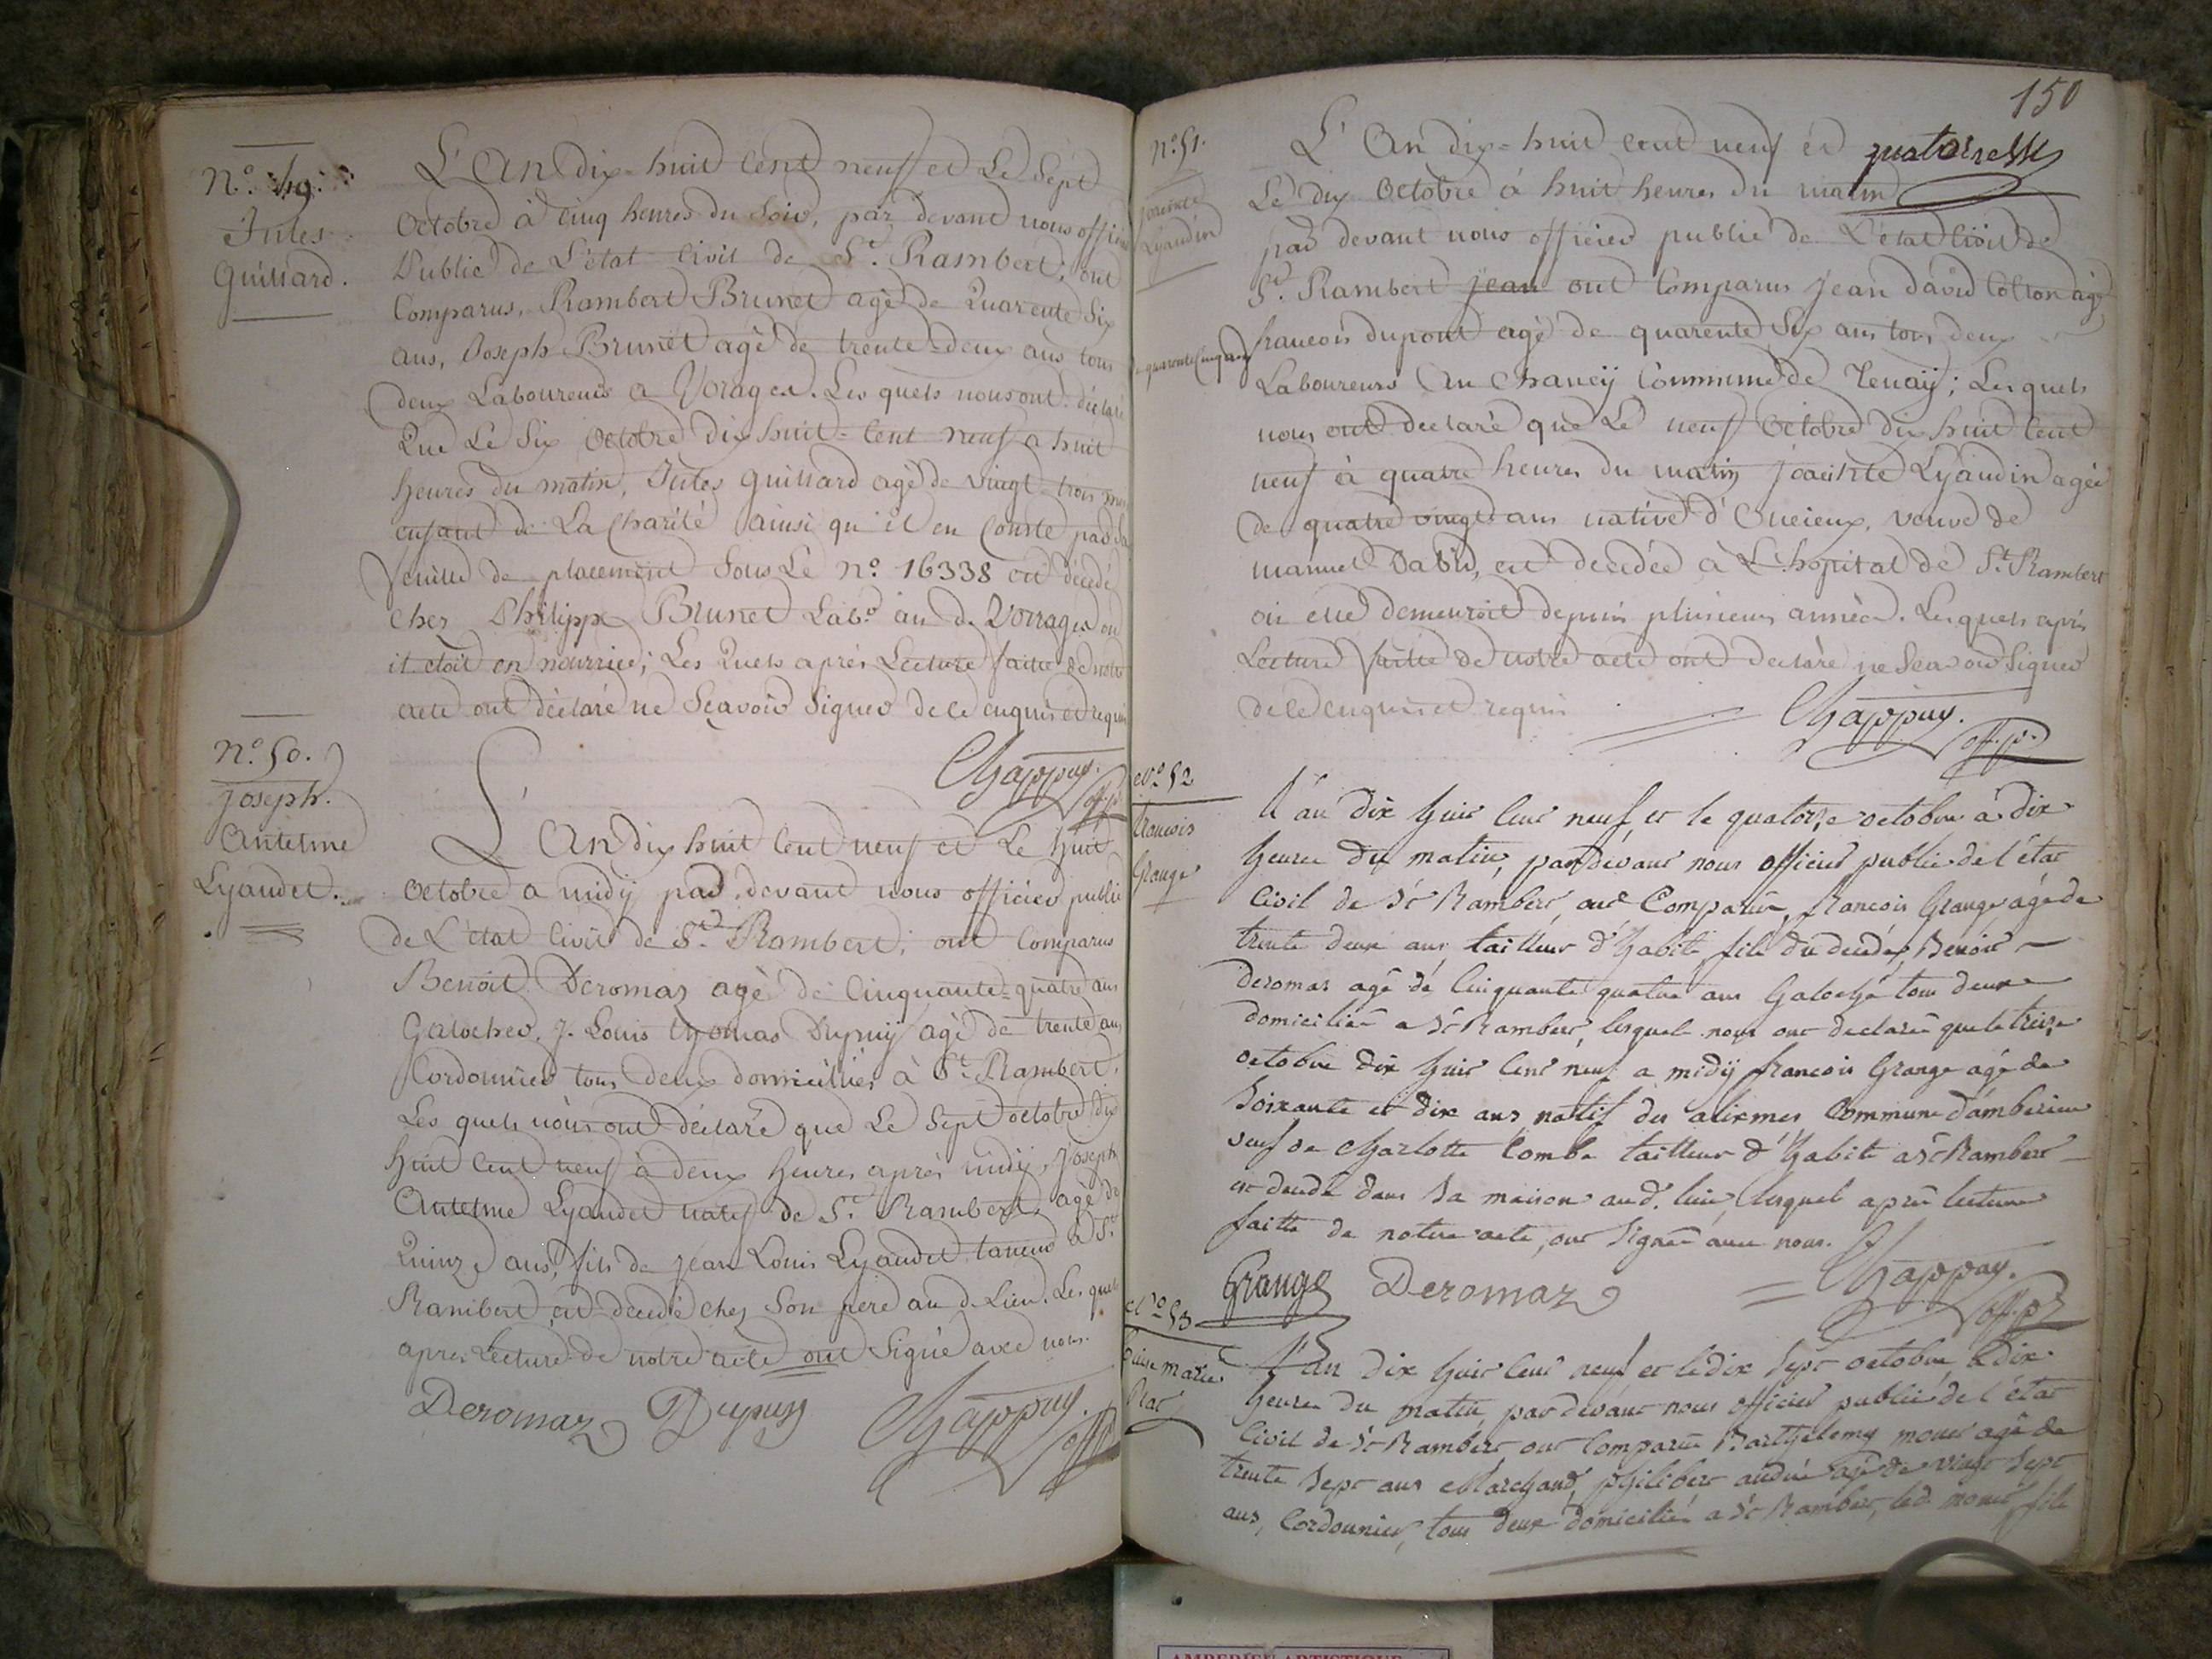 N.º 49.
Jules
Guillard.
L'An dix-huit Cent neuf et Le Sept
Octobre à Cinq heures du Soir, par devant nous officier
Public de L'état Civil de St. Rambert, ont
Comparus, Rambert Brunet agé de Quarente Six
ans, Joseph Brunet agé de trente-deux ans tous
deux Laboureurs a Vorages. Les quels nous ont déclaré
Que Le Six Octobre dix huit-Cent neuf a huit
heures du matin, Jules Guillard agé de vingt trois mois
enfant de La Charité ainsi qu'il en Conste par la
feuille de placement Sous Le nº. 16338 est décédé
chez Philippe Brunet Labr. au d. Vorrages ou
il étoit en nourrice; Les Quels après Lecture faitte de notre
acte ont déclaré ne Sçavoir Signer de ce enquis et requis
Chappuy.
off. p.
Nº. 50.
Joseph.
Antelme
Lyaudet.
L'An dix huit Cent neuf et Le huit
Octobre a midÿ par devant nous officier public
de L'état Civil de St. Rambert; ont Comparus
Benoit Deromaz agé de Cinquante-quatre ans
Galocher, J. Louis thomas Dupuÿ agé de trente ans
Cordonnier tous deux domiciliés à St. Rambert.
Les quels nous ont déclaré que Le Sept octobre dix
huit Cent neuf à deux heures après midÿ, Joseph
Antelme Lyaudet natif de St. Rambert, agé de
Quinze ans, fils de Jean Louis Lyaudet taneur à St.
Rambert, est décédé chez Son père au d. Lieu. Les quels
après Lecture de notre acte ont Signé avec nous.
Deromaz Dupuy Chappuy.
off. p.
150
nº. 51.
joacinte
Lyaudin
L'An dix-huit cent neuf et
Le dix Octobre à huit heures du matin
par devant nous officier public de L'état Civil de
St. Rambert jean ont Comparus jean david Cotton agé
de quarente Cinq ans
francois dupont agé de quarente Six ans tous deux
Laboureurs Au Chaneÿ Commune de Tenaÿ; Les quels
nous ont declaré que Le neuf Octobre dix huit Cent
neuf à quatre heures du matin joacinte Lyaudin agée
de quatre vingt ans native d'Oncieux, veuve de
manuel David, est décédée à L'hopital de St. Rambert
où elle demeuroit depuis plusieurs années. Les quels après
Lecture faitte de notre acte ont declaré ne Scavoir Signer
de ce enquis et requis
Chappuy.
off. p.
Nº 52
francois
Grange
L'an dix huit Cent neuf, et le quatorze octobre à dix
heures du matin, pardevant nous officier public de l'état
Civil de St Rambert, ont Comparus, francois Grange agé de
trente deux ans, tailleur d'habits, fils du decedé, Benoit
Deromas agé de Cinquante quatre ans Galoché tous deux
domiciliés a St Rambert, lesquels nous ont declarés que le treize
octobre dix huit Cent neuf a midÿ francois Grange agé de
soixante et dix ans natif des alixmes Commune d'amberieu
veuf de Charlotte Combe tailleur d'habits a St Rambert
est decedé dans sa maison aud. lieu, lesquels après lecture
faitte de notre acte, ont signés avec nous.
Grange Deromaz Chappuy.
off. p.
Nº 53
marie
L'an dix huit Cent neuf et le dix sept octobre à dix
heures du matin, par devant nous officier public de l'état
Civil de St Rambert ont Comparus Barthelemy monet agé de
trente Sept ans Marchand, philibert andré agé de vingt sept
ans, Cordonnier, tous deux domiciliés a St Rambert, led. monet fils